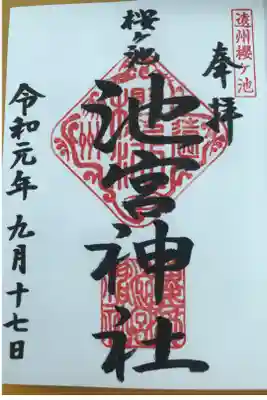 遠州櫻ヶ池
奉拝
櫻ヶ池
池宮神社
令和元年九月十七日